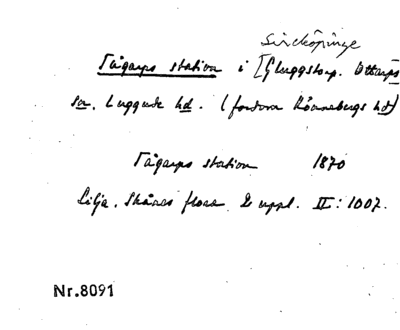 Sireköpinge
Tågarps station i [Gluggstorp. Ottarps
sn, Luggude hd. (fordom Rönnebergs hd)
Tågarps station 1870
Lilja. Skånes flora 2 uppl. II: 1007.
Nr.8091